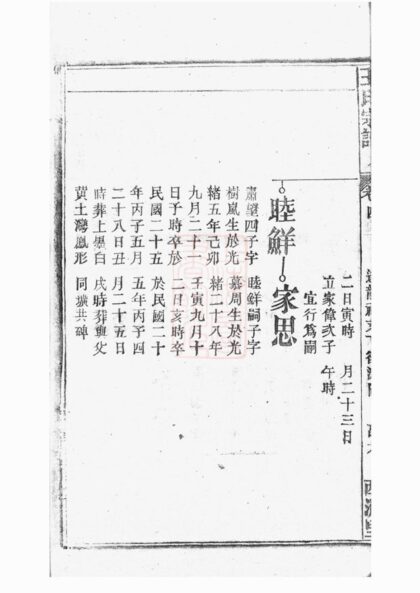 王氏宗譜
卷四
二日寅時
立家偉弍子
宜行為嗣
月二十三日
午時
睦鮮
家思
肅望四子字
樹嵐生於光
緒五年己卯
九月二十一
日子時卒於
民國二十五
年丙子五月
二十八日丑
時葬上墨白
黃土灣鳳形
睦鮮嗣子字
慕周生於光
緒二十八年
壬寅九月十
二日亥時卒
於民國二十
五年丙子四
月二十五日
戌時葬與父
同壙共碑